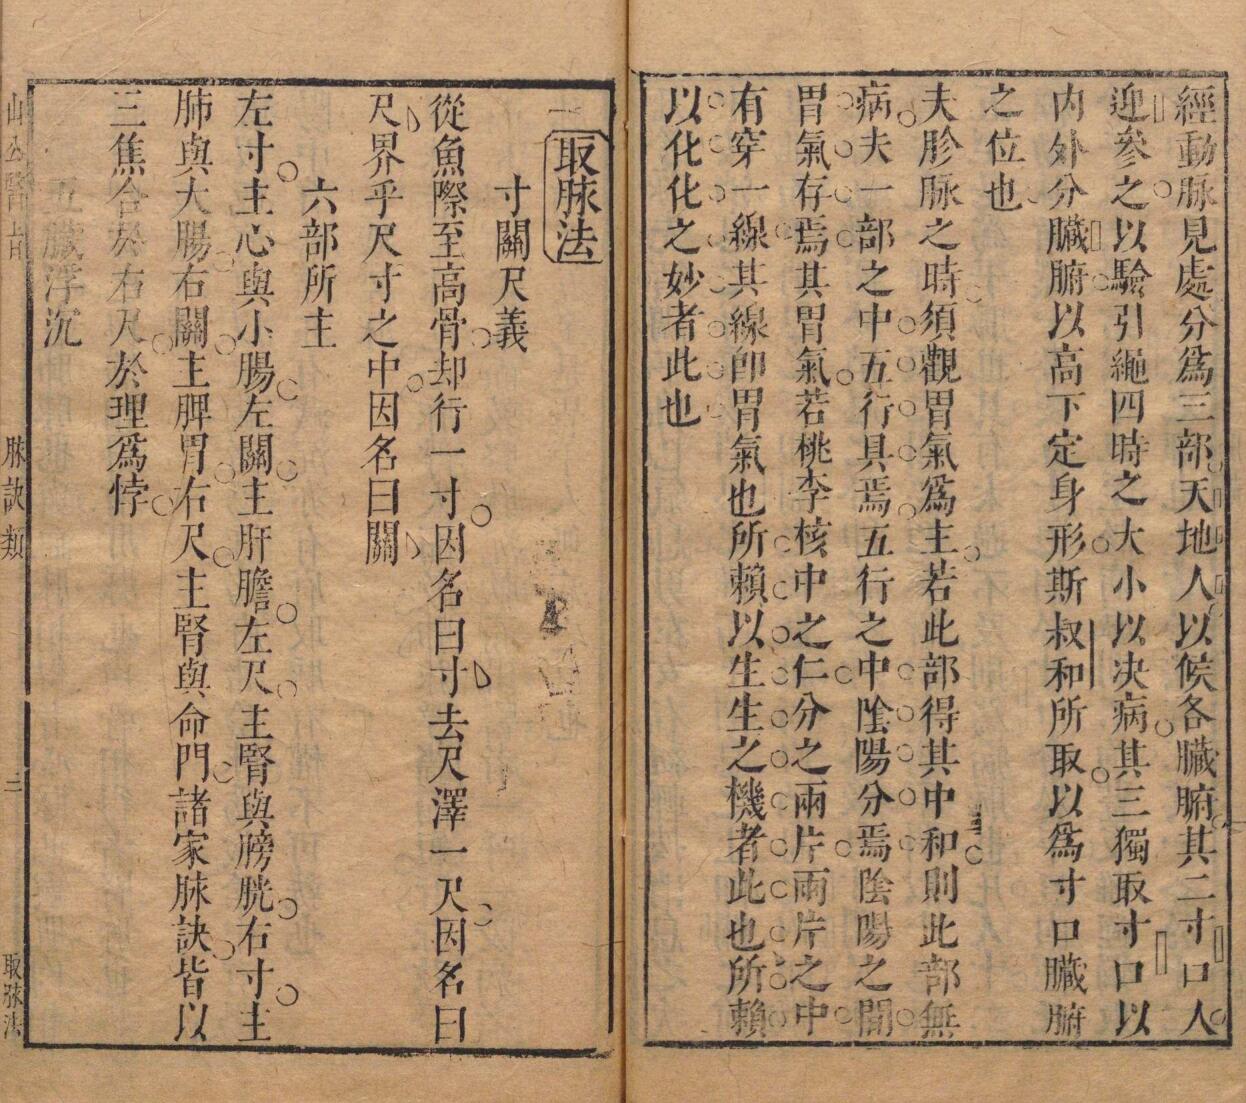 經動脉見處分爲三部天地人以候各臟腑其二寸口人
迎參之以驗引繩四時之大小以决病其三獨取寸口以
内外分臟腑以高下定身形斯叔和所取以爲寸口臟腑
之位也
夫胗脉之時須觀胃氣爲主若此部得其中和則此部無
病夫一部之中五行具焉五行之中陰陽分焉陰陽之間
胃氣存焉其胃氣若桃李核中之仁分之兩片兩片之中
有穿一線其線卽胃氣也所賴以生生之機者此也所賴
以化化之妙者此也
取脉法
寸關尺義
從魚際至高骨却行一寸因名曰寸去尺澤一尺因名曰
尺界乎尺寸之中因名曰關
六部所主
左寸主心與小腸左關主肝膽左尺主腎與膀胱右寸主
肺與大腸右關主脾胃右尺主腎與命門諸家脉訣皆以
三焦合於右尺於理爲悖
五臟浮沉
脉訣類
二
取脉法